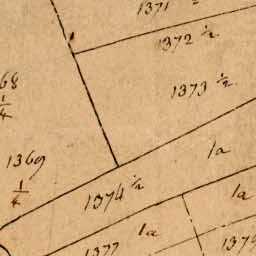 1371 ½
1372 ½
68
1/4
1373 ½
1369
1/4
1a
1374 ½
1a
1a
1377